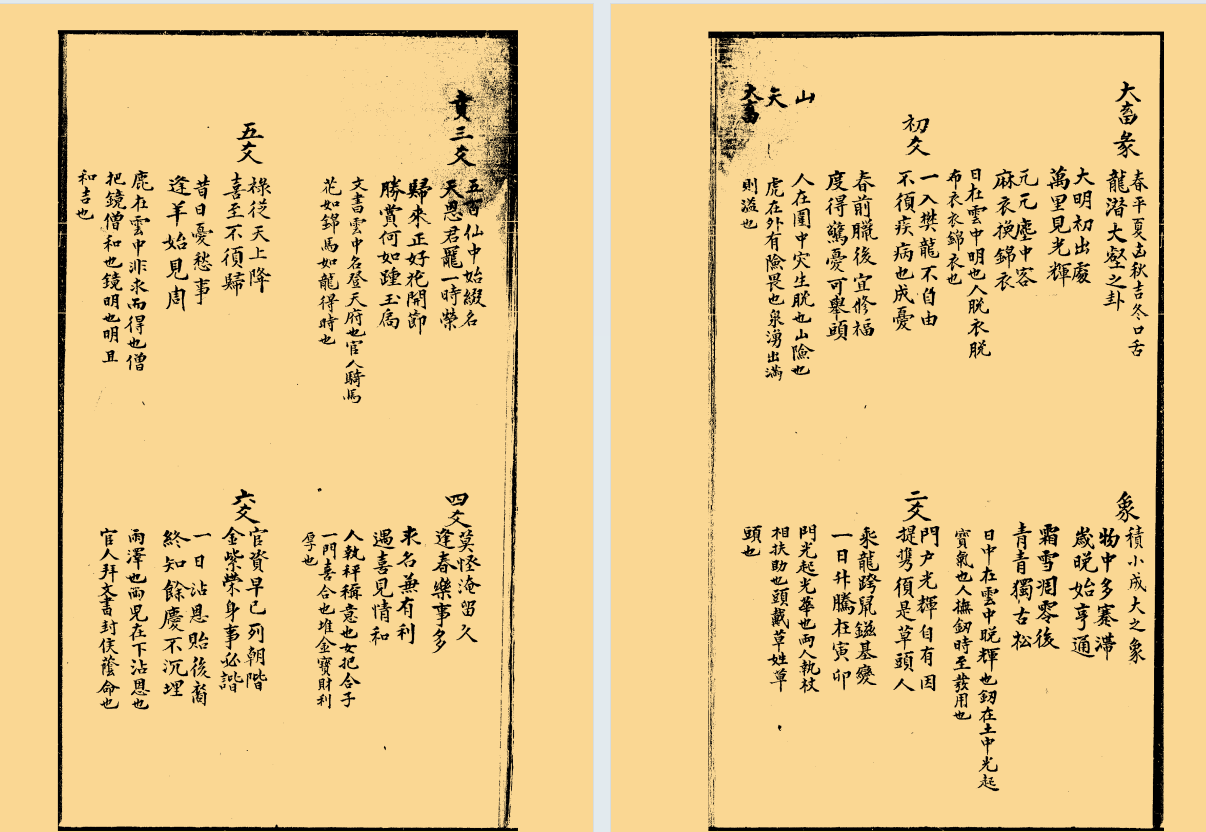 大畜彖
春平夏凶秋吉冬口舌
龍潛大壑之卦
大明初出處
萬里見光輝
元元塵中客
麻衣換錦衣
日在雲中明也人脫衣脫
布衣衣錦衣也
象
積小成大之象
物中多蹇滯
歲晚始亨通
霜雪凋零後
青青獨古松
日中在雲中晚輝也釼在土中光起
寶氣也人撫釼時至發用也
初爻
一入樊龍不自由
不須疾病也成憂
春前臘後宜修福
度得驚憂可舉頭
人在圍中突生脫也山險也
虎在外有險畏也泉湧出滿
則溢也
二爻
門戶光輝自有因
提携須是草頭人
乘龍跨鼠鎡基變
一日升騰在寅卯
門光起光華也兩人執杖
相扶助也頭戴草姓草
頭也
山
天
大畜
賁三爻
五百仙中始綴名
天恩君寵一時榮
歸來正好花開節
勝賞何如踵玉扃
文書雲中名登天府也官人騎馬
花如錦馬如龍得時也
四爻
莫怪淹留久
逢春樂事多
求名兼有利
遇喜見情和
人執秤稱意也女把合子
一門喜合也堆金寶財利
厚也
五爻
祿從天上降
喜至不須歸
昔日憂愁事
逢羊始見周
鹿在雲中非求而得也僧
把鏡僧和也鏡明也明且
和吉也
六爻
官資早已列朝階
金紫榮身事必諧
一日沾恩貽後裔
終知餘慶不沉埋
雨澤也兩児在下沾恩也
官人拜文書封侯蔭命也